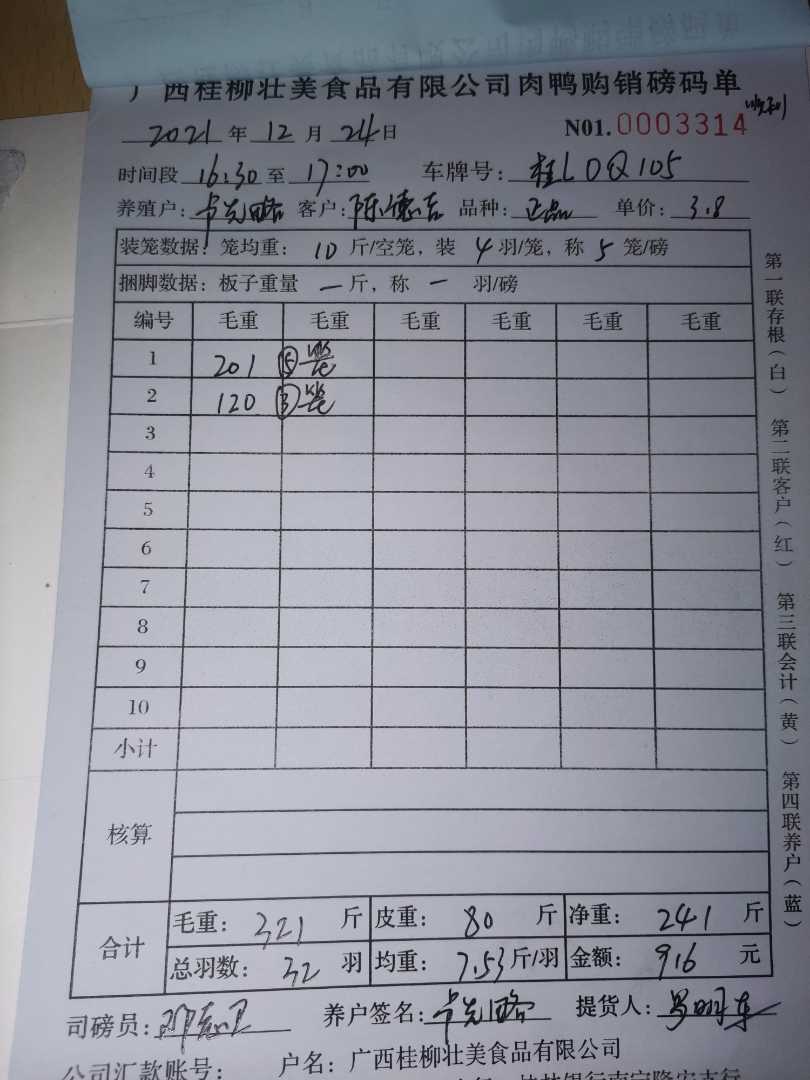 广西桂柳壮美食品有限公司肉鸭购销磅码单
2021 年 12 月 24日 N01. 0003314
时间段 16:30 至 17:00 车牌号: 桂L0Q105
养殖户: 客户: 陈德吉 品种: 正品 单价: 3.8
装笼数据: 笼均重: 10 斤/空笼, 装 4 羽/笼, 称 5 笼/磅
捆脚数据: 板子重量 一 斤, 称 一 羽/磅
编号 毛重 毛重 毛重 毛重 毛重 毛重
1 201 ⑤笼
2 120 ③笼
3
4
5
6
7
8
9
10
小计
核算
合计
毛重: 321 斤 皮重: 80 斤 净重: 241 斤
总羽数: 32 羽 均重: 7.53 斤/羽 金额: 916 元
司磅员: 养户签名: 提货人:
公司汇款账号: 户名: 广西桂柳壮美食品有限公司
第一联存根(白) 第二联客户(红) 第三联会计(黄) 第四联养户(蓝)